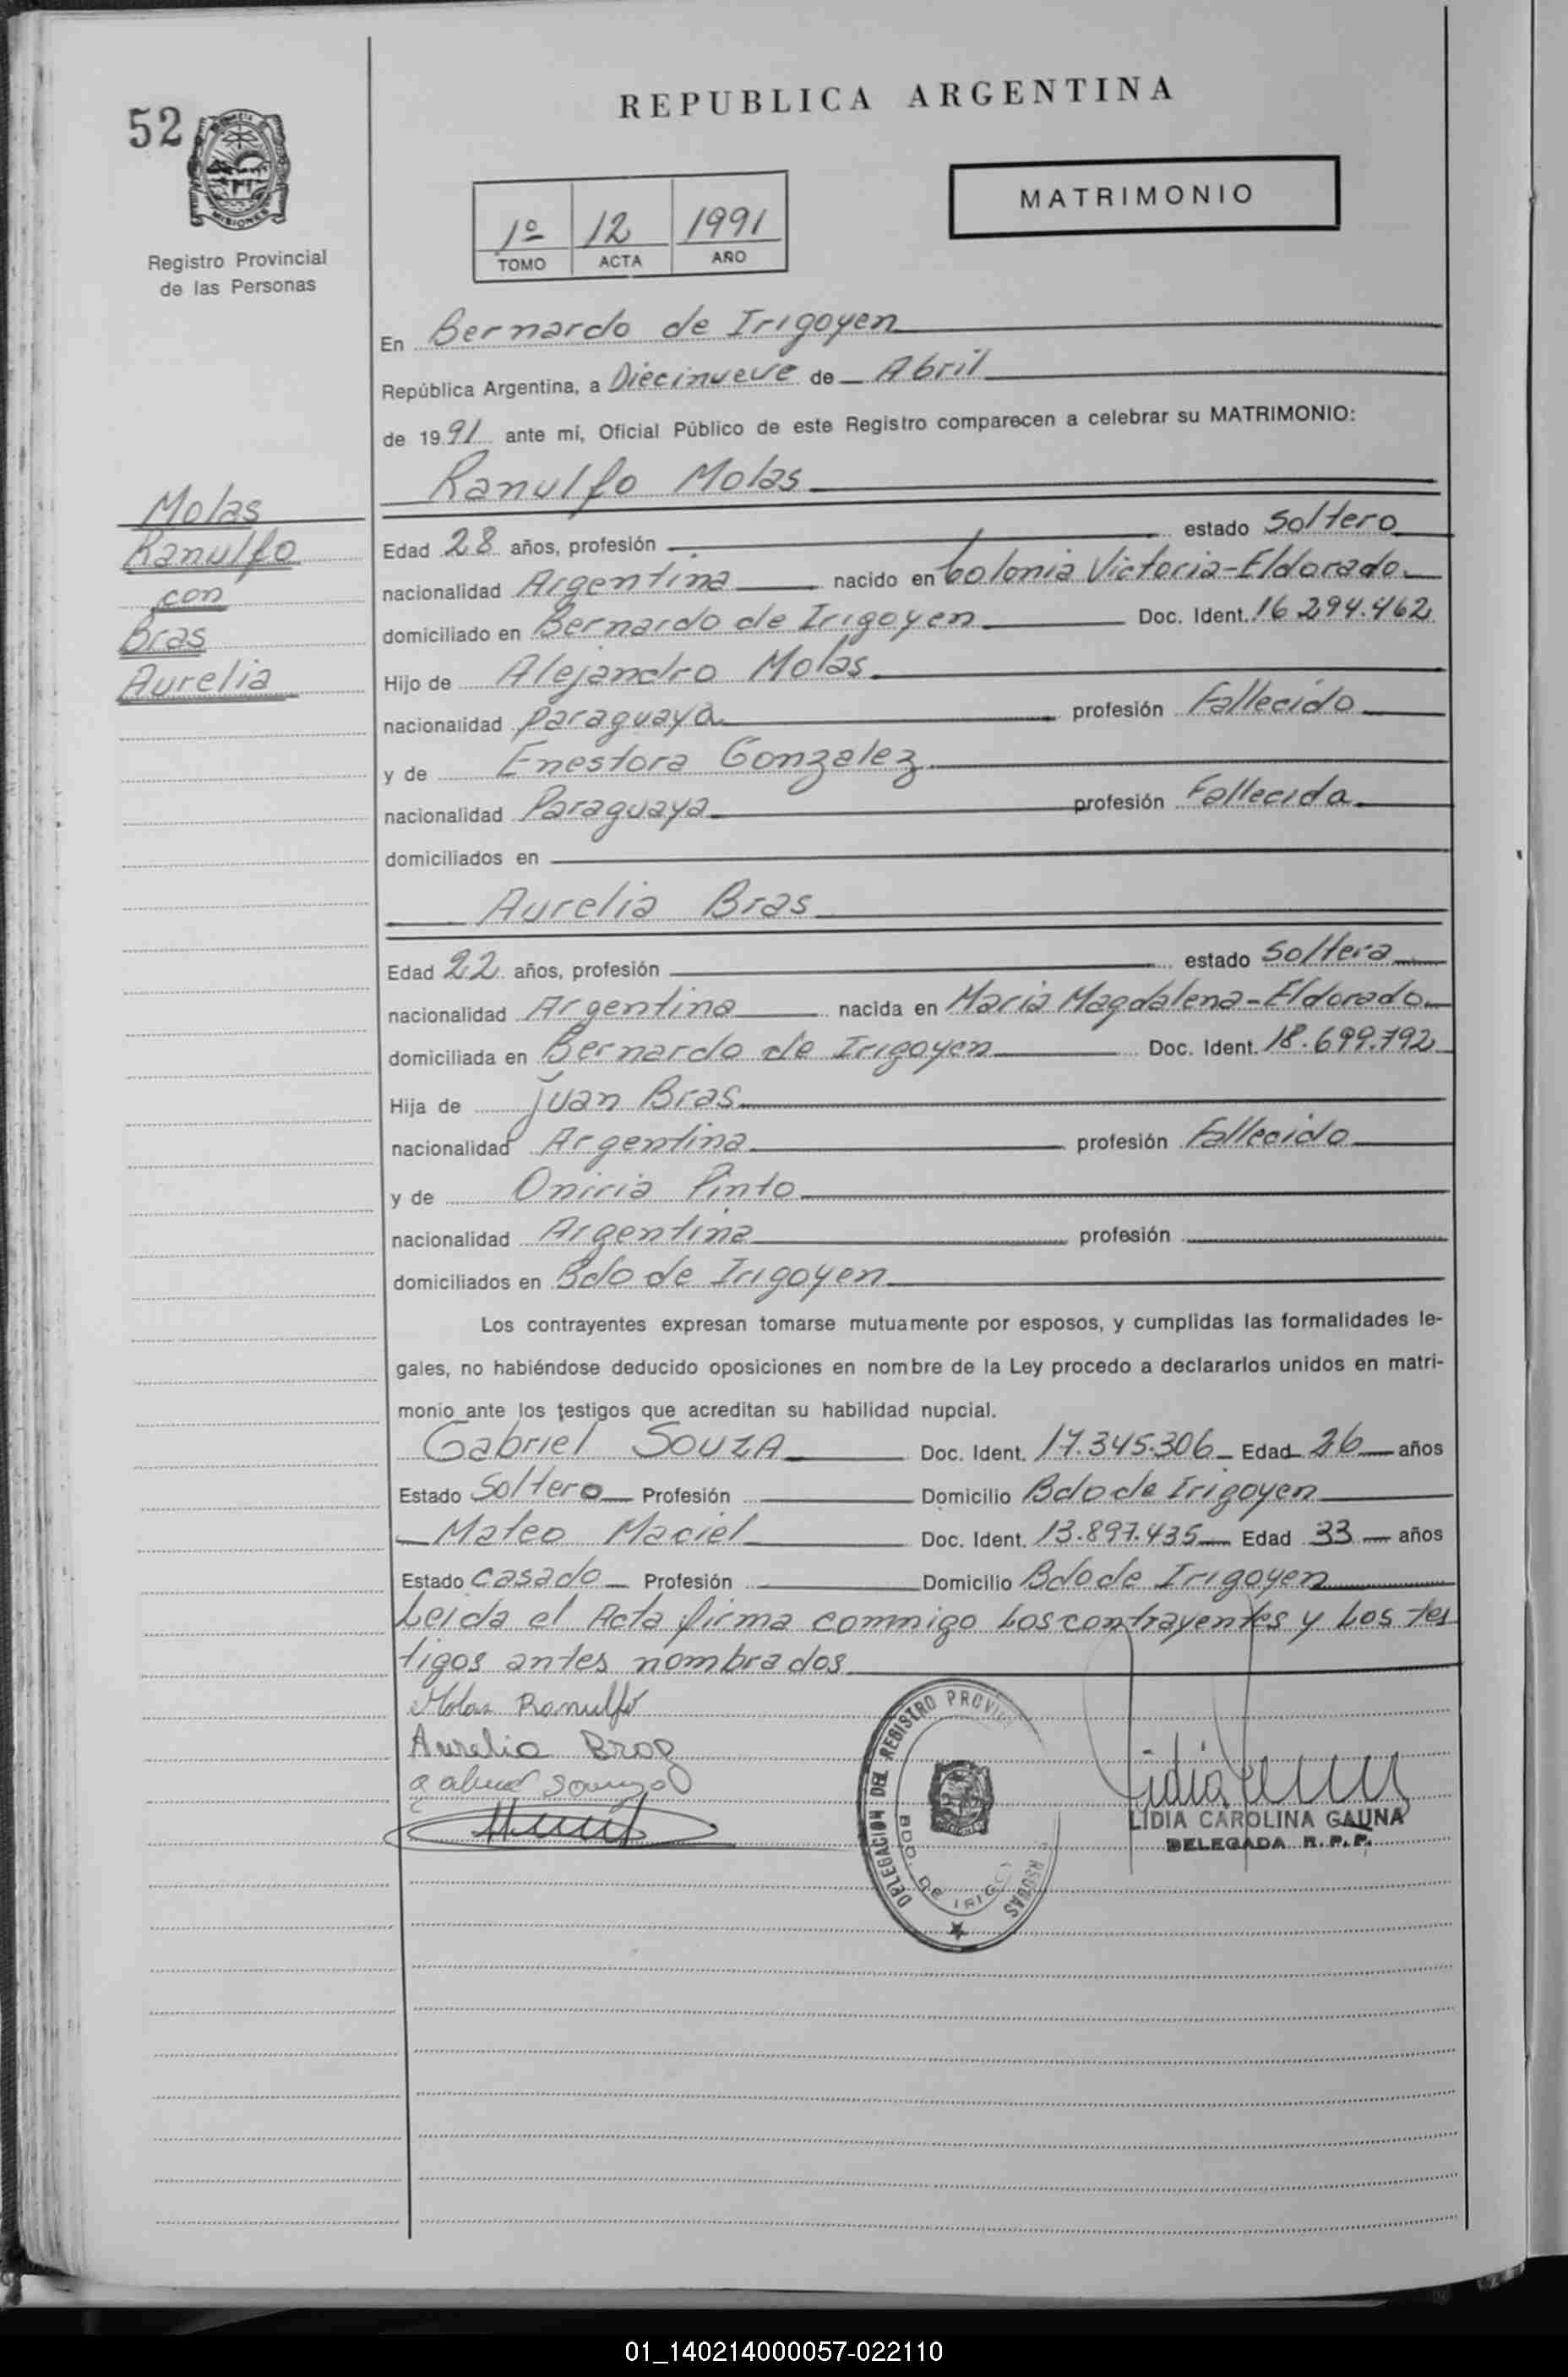 REPUBLICA ARGENTINA
52
MISIONES
Registro Provincial
de las Personas
1º 12 1991
TOMO ACTA AÑO
MATRIMONIO
En Bernardo de Irigoyen
República Argentina, a Diecinueve de Abril
de 1991 ante mí, Oficial Público de este Registro comparecen a celebrar su MATRIMONIO:
Molas
Ranulfo
con
Bras
Aurelia
Ranulfo Molas
Edad 28 años, profesión estado Soltero
nacionalidad Argentina nacido en Colonia Victoria-Eldorado
domiciliado en Bernardo de Irigoyen Doc. Ident. 16.294.462
Hijo de Alejandro Molas
nacionalidad paraguaya profesión Fallecido
y de Enestora Gonzalez
nacionalidad Paraguaya profesión Fallecida
domiciliados en
Aurelia Bras
Edad 22 años, profesión estado Soltera
nacionalidad Argentina nacida en Maria Magdalena-Eldorado
domiciliada en Bernardo de Irigoyen Doc. Ident. 18.699.792
Hija de Juan Bras
nacionalidad Argentina profesión Fallecido
y de Oniria Pinto
nacionalidad Argentina profesión
domiciliados en Bdo de Irigoyen
Los contrayentes expresan tomarse mutuamente por esposos, y cumplidas las formalidades le-
gales, no habiéndose deducido oposiciones en nombre de la Ley procedo a declararlos unidos en matri-
monio ante los testigos que acreditan su habilidad nupcial.
Gabriel SOUZA Doc. Ident. 17.345.306 Edad 26 años
Estado Soltero Profesión Domicilio Bdo de Irigoyen
Mateo Maciel Doc. Ident. 13.897.435 Edad 33 años
Estado casado Profesión Domicilio Bdo de Irigoyen
Leida el Acta firma commigo Los contrayentes y Los tes
tigos antes nombrados
Molas Ranulfo
Aurelia Bras
DELEGACION DEL REGISTRO
BDO. DE
LIDIA CAROLINA GAUNA
DELEGADA R.P.P.
01_140214000057-022110